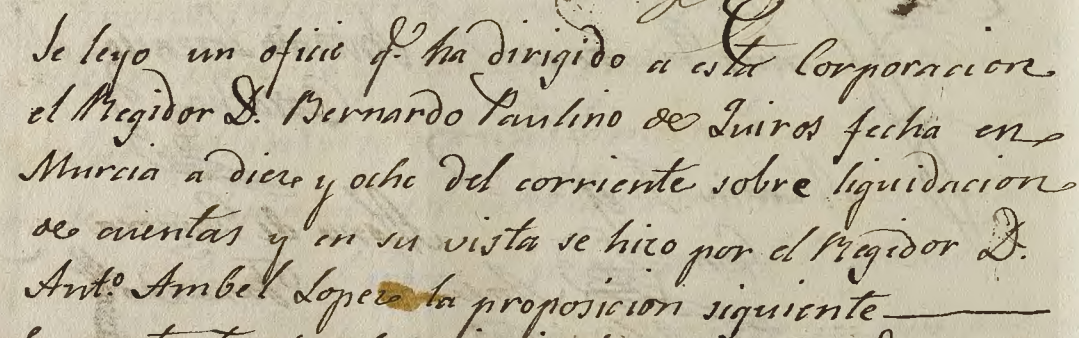 Se leyo un oficio q.e ha dirigido a esta Corporacion
el Regidor D. Bernardo Paulino de Quiros fecha en
Murcia a diez y ocho del corriente sobre liquidacion
de cuentas y en su vista se hizo por el Regidor D.
Ant.º Ambel Lopez la proposicion siguiente